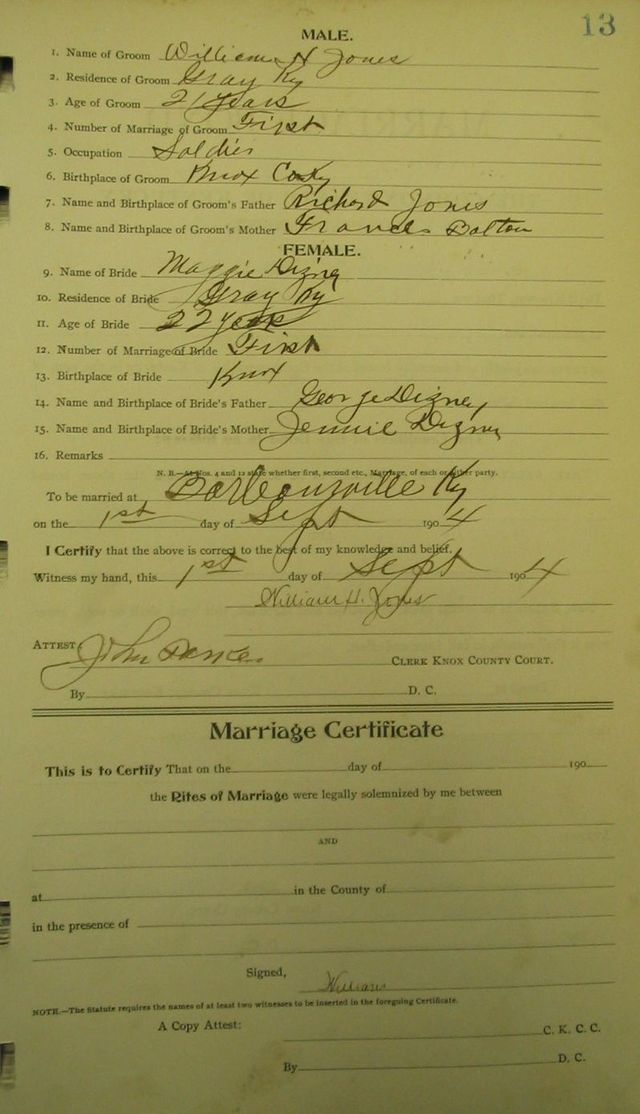 13
MALE.
1. Name of Groom William H Jones
2. Residence of Groom Gray Ky
3. Age of Groom 21 Years
4. Number of Marriage of Groom First
5. Occupation Soldier
6. Birthplace of Groom Knox Co Ky
7. Name and Birthplace of Groom's Father Richard Jones
8. Name and Birthplace of Groom's Mother Frances Dalton
FEMALE.
9. Name of Bride Maggie Dizney
10. Residence of Bride Gray Ky
11. Age of Bride 22 years
12. Number of Marriage of Bride First
13. Birthplace of Bride Knox
14. Name and Birthplace of Bride's Father George Dizney
15. Name and Birthplace of Bride's Mother Jennie Dizney
16. Remarks
N. B.—At Nos. 4 and 12 state whether first, second etc., Marriage, of each or either party.
To be married at Barbourville Ky
on the 1st day of Sept 1904
I Certify that the above is correct to the best of my knowledge and belief.
Witness my hand, this 1st day of Sept 1904
William H. Jones
ATTEST John CLERK KNOX COUNTY COURT.
By D. C.
Marriage Certificate
This is to Certify That on the day of 190
the Rites of Marriage were legally solemnized by me between
AND
at in the County of
in the presence of
Signed, William
NOTE.—The Statute requires the names of at least two witnesses to be inserted in the foregoing Certificate.
A Copy Attest: C. K. C. C.
By D. C.